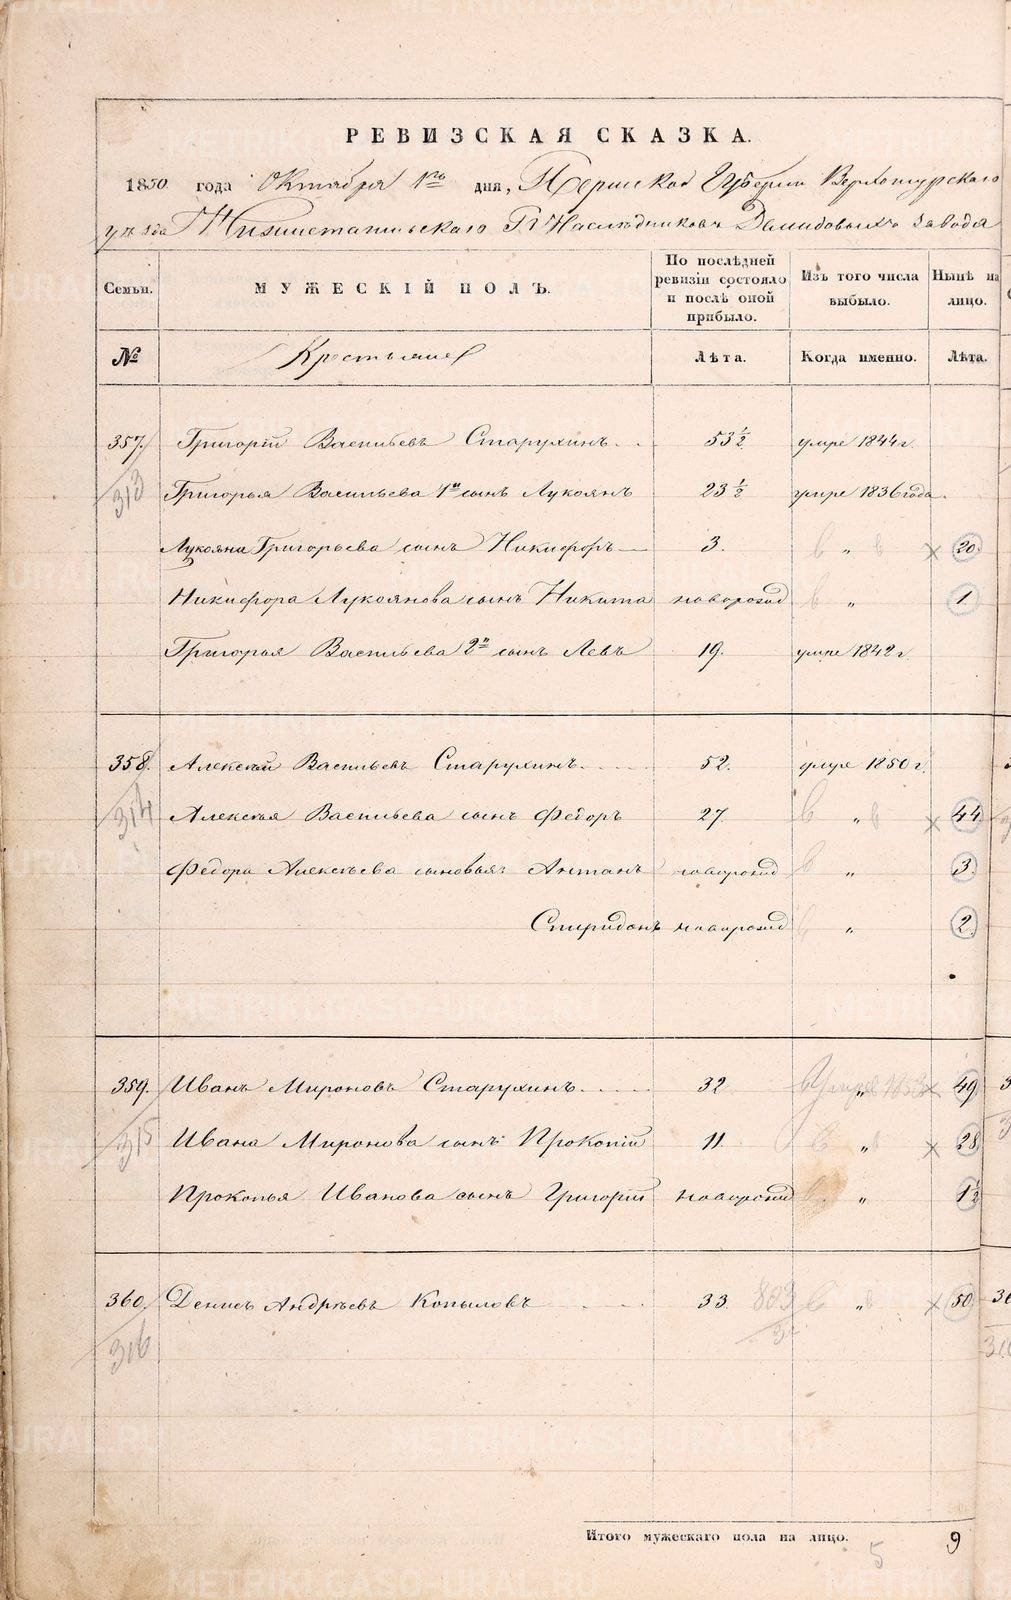 РЕВИЗСКАЯ СКАЗКА.
1850 года Октября 1го дня, Пермской Губернiи Верхотурскаго
уѣзда Нижнетагильскаго Гг. Наслѣдниковъ Демидовыхъ завода
Семьи. МУЖЕСКІЙ ПОЛЪ. По послѣдней ревизіи состояло и послѣ оной прибыло. Изъ того числа выбыло. Нынѣ на лицо.
№ Крестьяне Лѣта. Когда именно. Лѣта.
357. Григорій Васильевъ Старухинъ 53 ½ умре 1844 г.
313 Григорья Васильева 1й сынъ Лукоянъ 23 ½ умре 1836 года.
Лукояна Григорьева сынъ Никифоръ 3. в „ в × 20.
Никифора Лукоянова сынъ Никита новорожд в „ 1.
Григорья Васильева 2й сынъ Левъ 19. умре 1842 г.
358. Алексѣй Васильевъ Старухинъ 52. умре 1850 г.
314 Алексѣя Васильева сынъ Федоръ 27. в „ в × 44
Федора Алексѣева сыновья: Антонъ новорожд в „ 3.
Спиридонъ новорожд в „ 2.
359. Иванъ Мироновъ Старухинъ 32 в умре „ 1853 × 49.
315 Ивана Миронова сынъ Прокопій 11. в „ в × 28.
Прокопья Иванова сынъ Григорій новорожд в „ 1 ½
360. Денисъ Андрѣевъ Копыловъ 33. 803 в „ в × 50.
316
Итого мужескаго пола на лицо. 9
5
METRIKI.GASO-URAL.RU